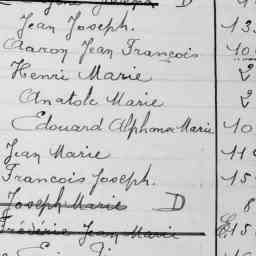 Jean Joseph. 13
Aaron Jean François 10
Henri Marie 2
Anatole Marie 2
Edouard Alphonse Marie 10
Jean Marie 11
François Joseph. 15
Joseph Marie D 8
Frédéric Jean Marie 15